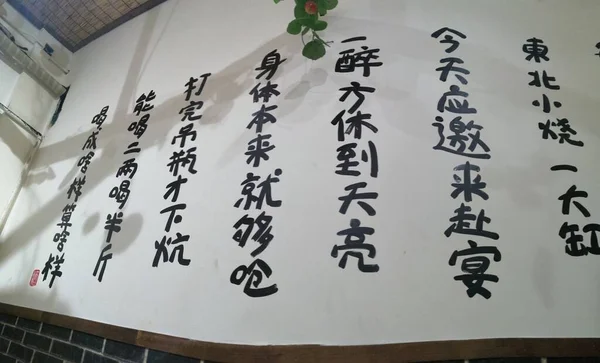 東北小烧一大缸
今天应邀来赴宴
一醉方休到天亮
身体本来就够呛
打完吊瓶才下炕
能喝二两喝半斤
喝成啥样算啥样